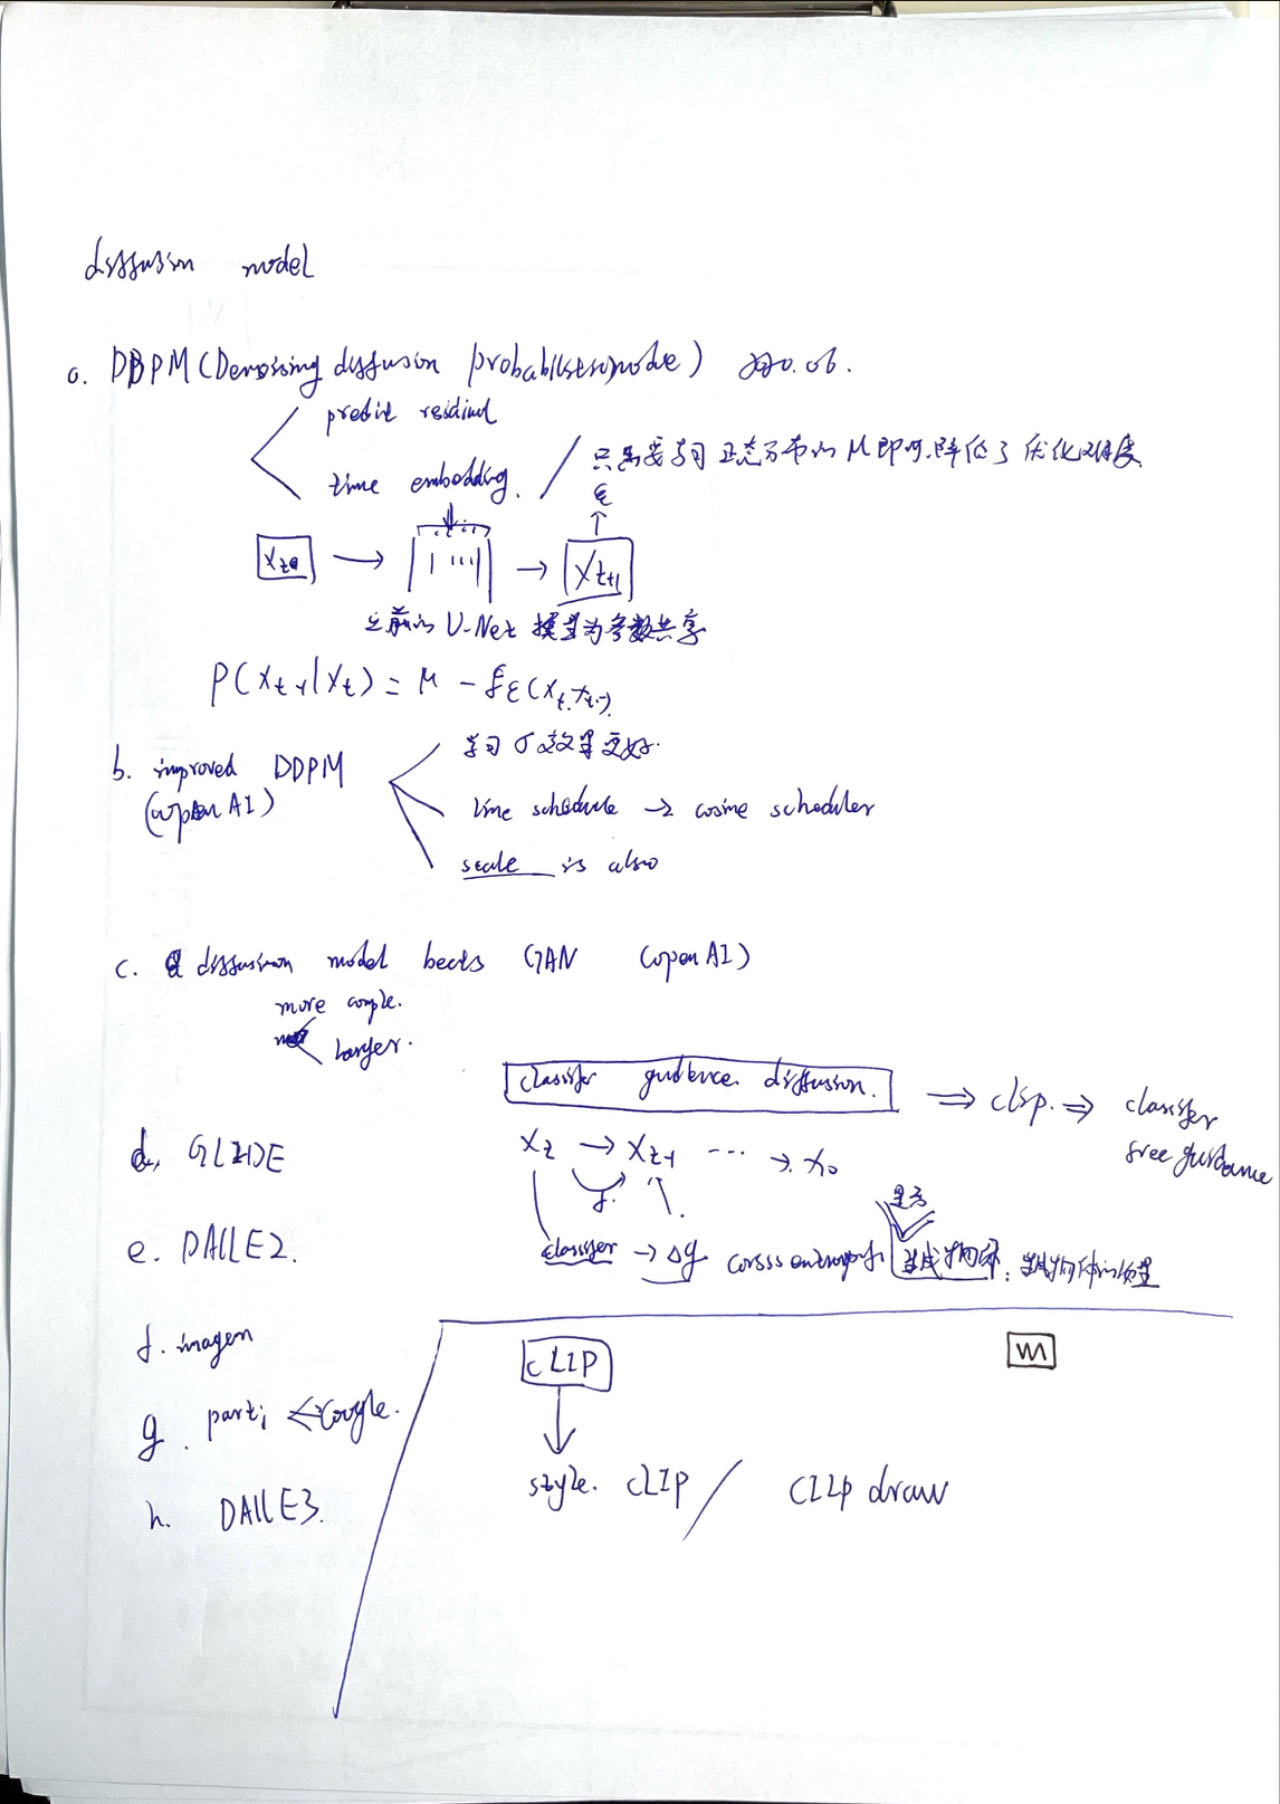 diffusion model
a. DDPM (Denoising diffusion probabilistic mode) 2020.06.
predit residual
time embedding. / 只需要学习正态分布的 μ 即可,降低了优化难度
ε
Xt → → Xt+1
之前的 U-Net 模型为参数共享
P(Xt-1|Xt) = μ - fε(Xt,
b. improved DDPM
(openAI)
学习 σ 效果更好.
line schedule → cosine scheduler
scale is also
c. diffusion model beats GAN (openAI)
more comple.
larger.
classifer guidence diffusion. ⇒ clip. ⇒ classifer free guidance
d. GLIDE
Xt → Xt-1 ... → X0
f.
e. DALLE2.
classifer → Δg
f. imagen
g. parti ← Google.
h. DALLE3.
CLIP
style. CLIP / CLIP draw